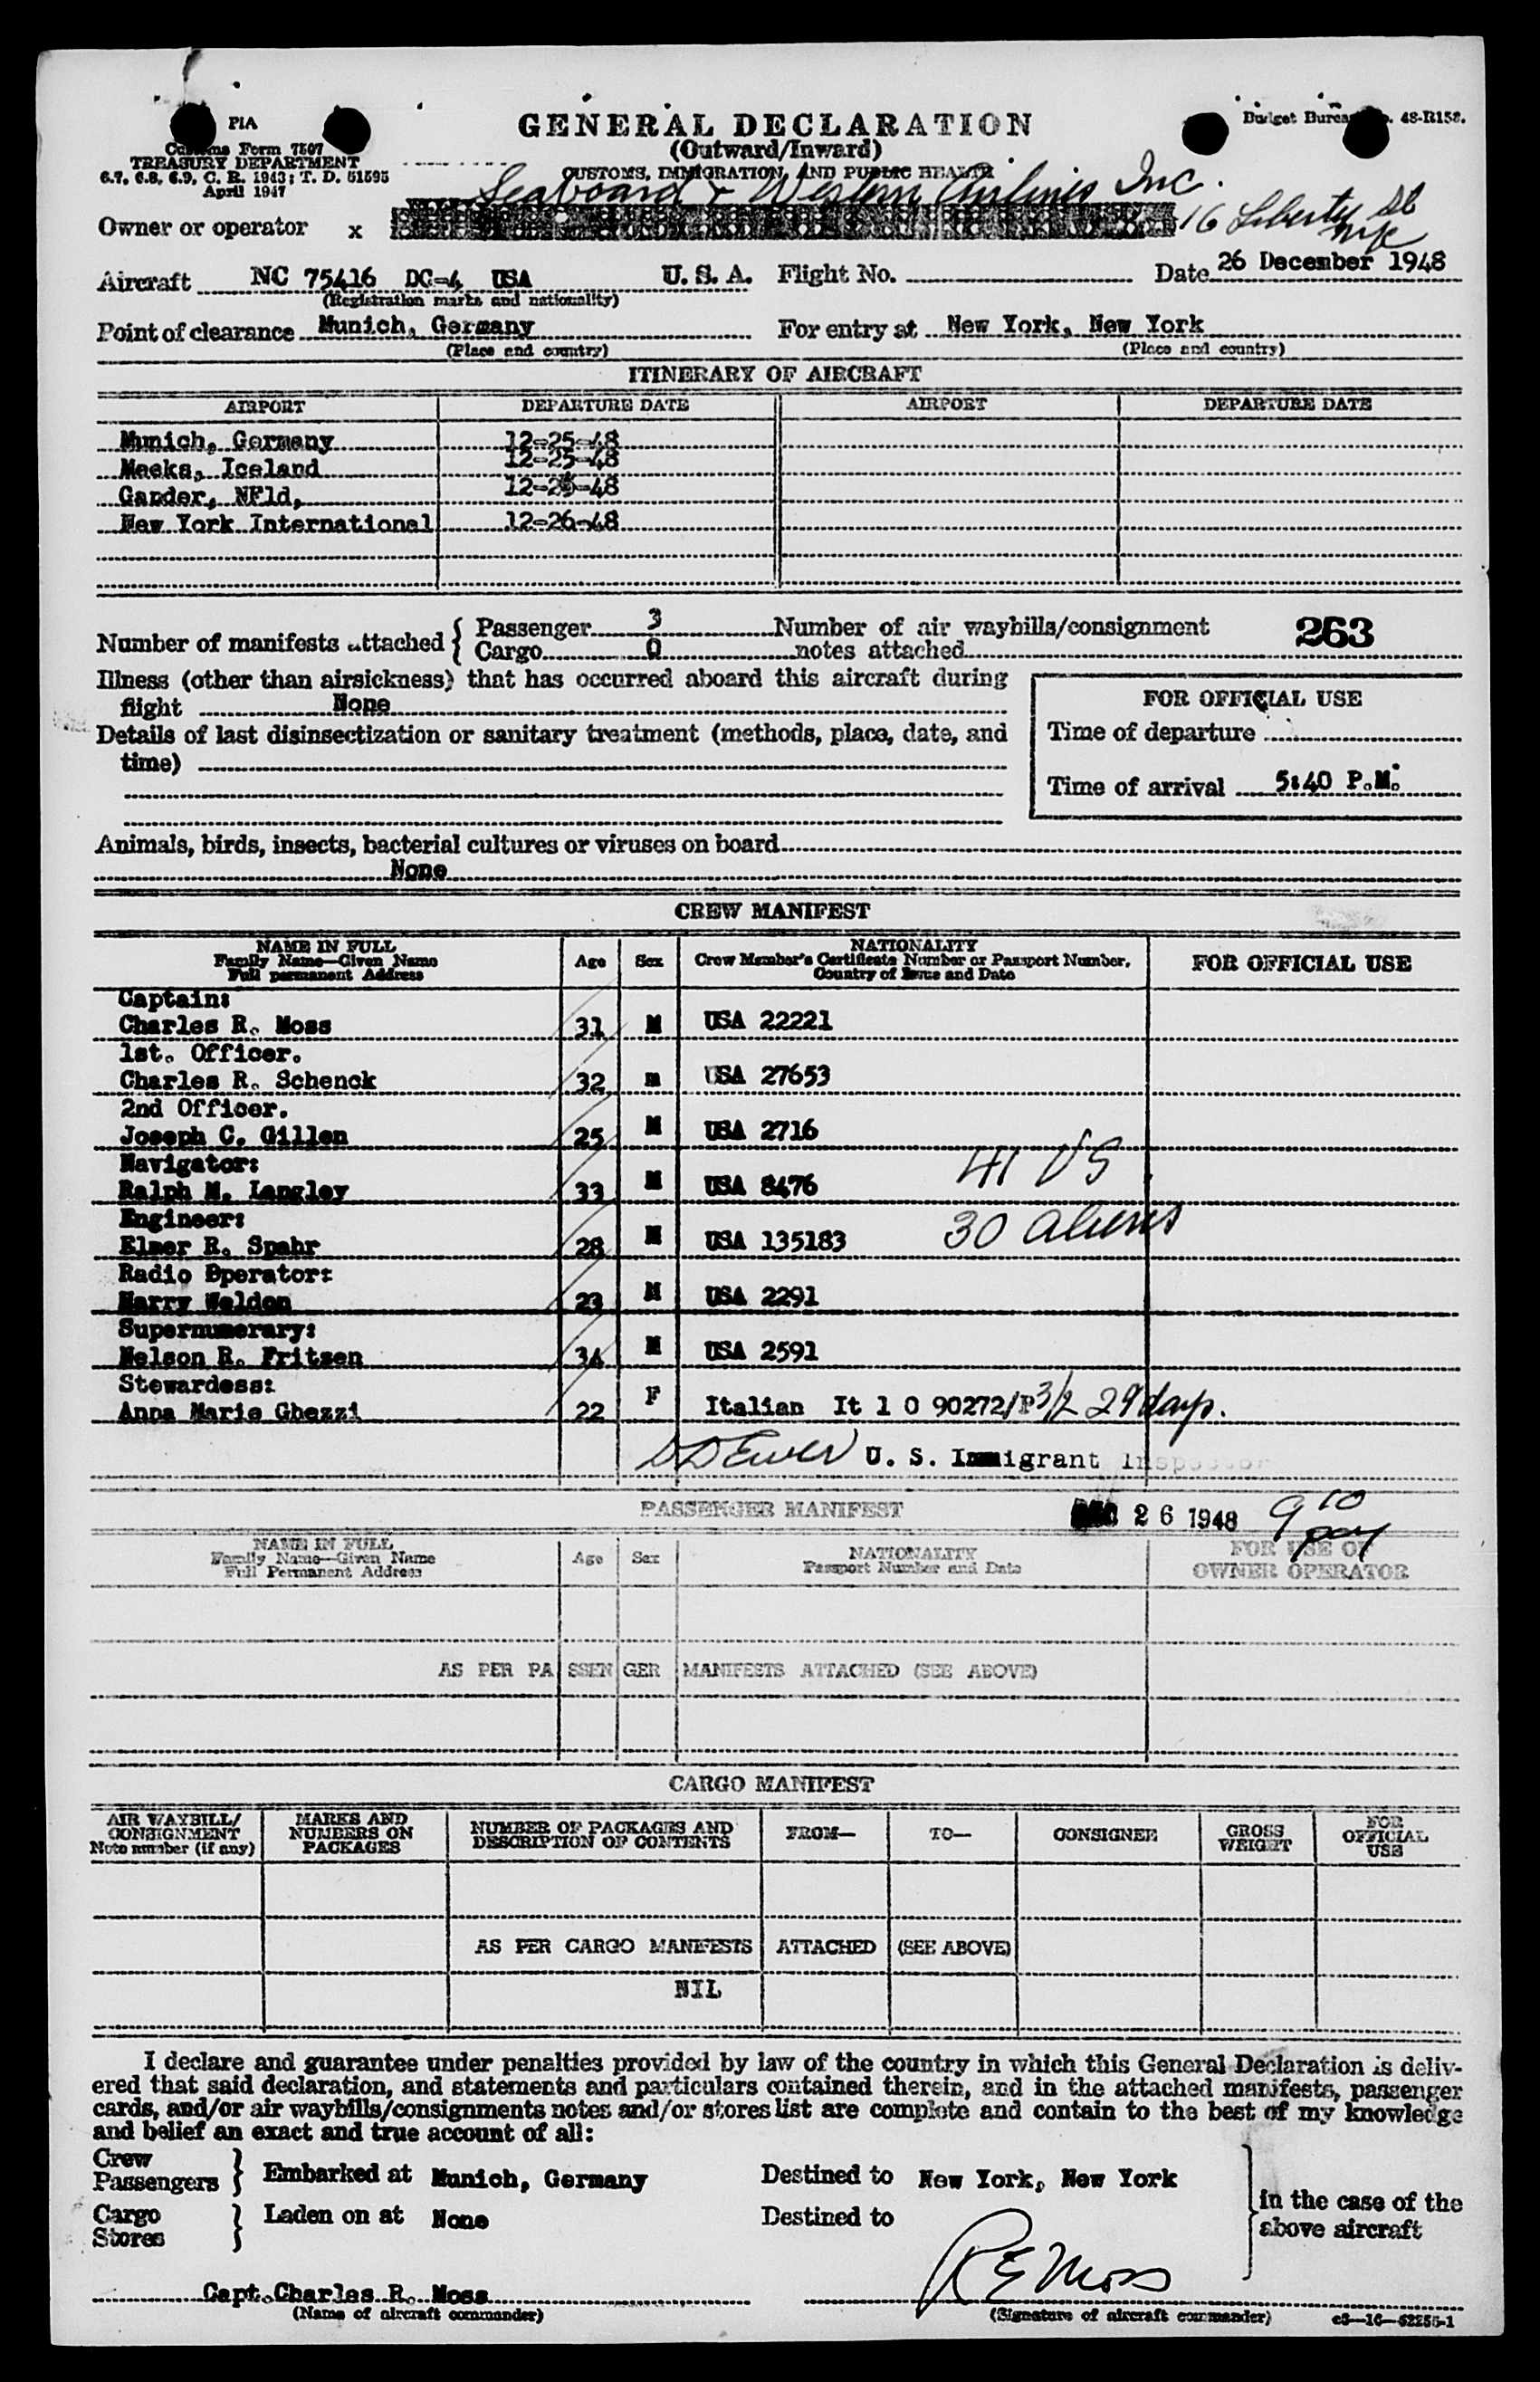 PIA
Customs Form 7507
TREASURY DEPARTMENT
6.7, 6.8, 6.9, C. R. 1943; T. D. 51595
April 1947
GENERAL DECLARATION
(Outward/Inward)
CUSTOMS, IMMIGRATION, AND PUBLIC HEALTH
Budget Bureau No. 48-R158.
Seaboard & Western Airlines Inc.
Owner or operator x 16 Liberty St
NYC
Aircraft NC 75416 DC-4 USA U. S. A. Flight No. Date 26 December 1948
(Registration marks and nationality)
Point of clearance Munich, Germany For entry at New York, New York
(Place and country) (Place and country)
ITINERARY OF AIRCRAFT
AIRPORT DEPARTURE DATE AIRPORT DEPARTURE DATE
Munich, Germany 12-25-48
Meeks, Iceland 12-25-48
Gander, NFld, 12-26-48
New York International 12-26-48
Number of manifests attached { Passenger 3 Number of air waybills/consignment 263
Cargo 0 notes attached
Illness (other than airsickness) that has occurred aboard this aircraft during
flight None
Details of last disinsectization or sanitary treatment (methods, place, date, and
time)
FOR OFFICIAL USE
Time of departure
Time of arrival 5:40 P.M.
Animals, birds, insects, bacterial cultures or viruses on board
None
CREW MANIFEST
NAME IN FULL
Family Name—Given Name
Full permanent Address
Age Sex
NATIONALITY
Crew Member's Certificate Number or Passport Number,
Country of Issue and Date
FOR OFFICIAL USE
Captain:
Charles R. Moss 31 M USA 22221
1st. Officer.
Charles R. Schenck 32 m USA 27653
2nd Officer.
Joseph C. Gillen 25 M USA 2716
Navigator:
Ralph M. Langley 33 M USA 8476 41 US
Engineer:
Elmer R. Spahr 28 M USA 135183 30 aliens
Radio Operator:
Harry Weldon 23 M USA 2291
Supernumerary:
Nelson R. Fritzen 34 M USA 2591
Stewardess:
Anna Marie Ghezzi 22 F Italian It 1 0 90272/P 3/2 29 days.
U. S. Immigrant Inspector
PASSENGER MANIFEST
DEC 26 1948 9 10
pm
NAME IN FULL
Family Name—Given Name
Full Permanent Address
Age Sex
NATIONALITY
Passport Number and Date
FOR USE OF
OWNER OPERATOR
AS PER PASSENGER MANIFESTS ATTACHED (SEE ABOVE)
CARGO MANIFEST
AIR WAYBILL/
CONSIGNMENT
Note number (if any)
MARKS AND
NUMBERS ON
PACKAGES
NUMBER OF PACKAGES AND
DESCRIPTION OF CONTENTS
FROM— TO— CONSIGNEE
GROSS
WEIGHT
FOR
OFFICIAL
USE
AS PER CARGO MANIFESTS ATTACHED (SEE ABOVE)
NIL
I declare and guarantee under penalties provided by law of the country in which this General Declaration is deliv-
ered that said declaration, and statements and particulars contained therein, and in the attached manifests, passenger
cards, and/or air waybills/consignments notes and/or stores list are complete and contain to the best of my knowledge
and belief an exact and true account of all:
Crew
Passengers } Embarked at Munich, Germany Destined to New York, New York
Cargo
Stores } Laden on at None Destined to
in the case of the
above aircraft
Capt. Charles R. Moss R E Moss
(Name of aircraft commander) (Signature of aircraft commander) c3—16—52255-1